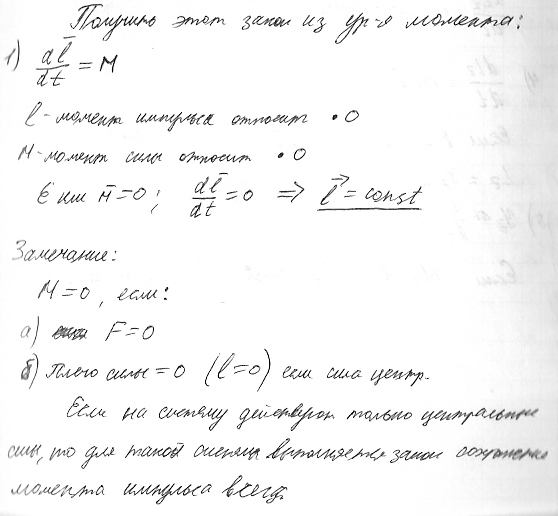 Получить этот закон из ур-я момента:
1) dl̄/dt = M
l - момент импульса относит • О
М - момент силы относит • О
Если M̄ = 0 ; dl̄/dt = 0 ⇒ l⃗ = const
Замечание:
М = 0, если:
а) F = 0
б) Плечо силы = 0 (l = 0) если сила центр.
Если на систему действуют только центральные
силы, то для такой системы выполняется закон сохранения
момента импульса всегда.